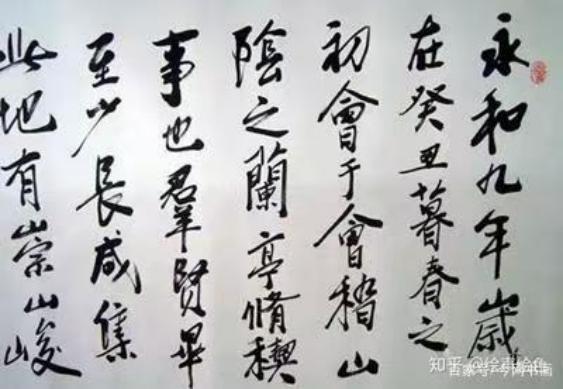 永和九年歲
在癸丑暮春之
初會于會稽山
陰之蘭亭脩禊
事也羣賢畢
至少長咸集
此地有崇山峻
知乎